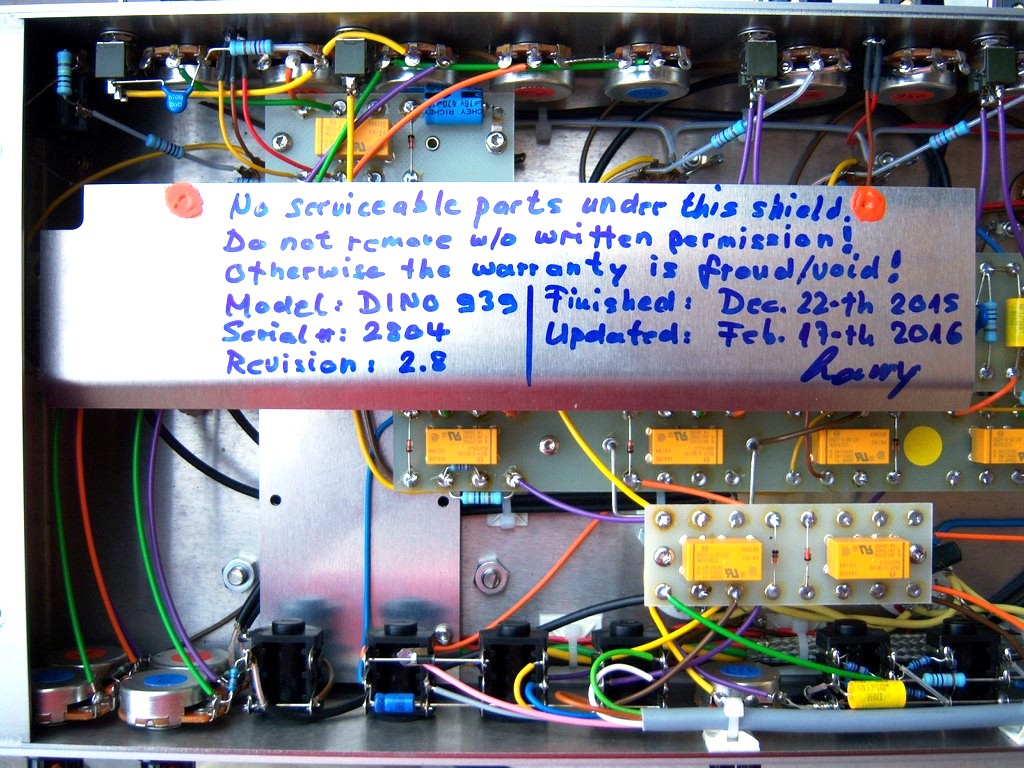 No serviceable parts under this shield.
Do not remove w/o written permission!
Otherwise the warranty is froud/void!
Model: DINO 939
Serial #: 2804
Revision: 2.8
Finished: Dec. 22-th 2015
Updated: Feb. 17-th 2016